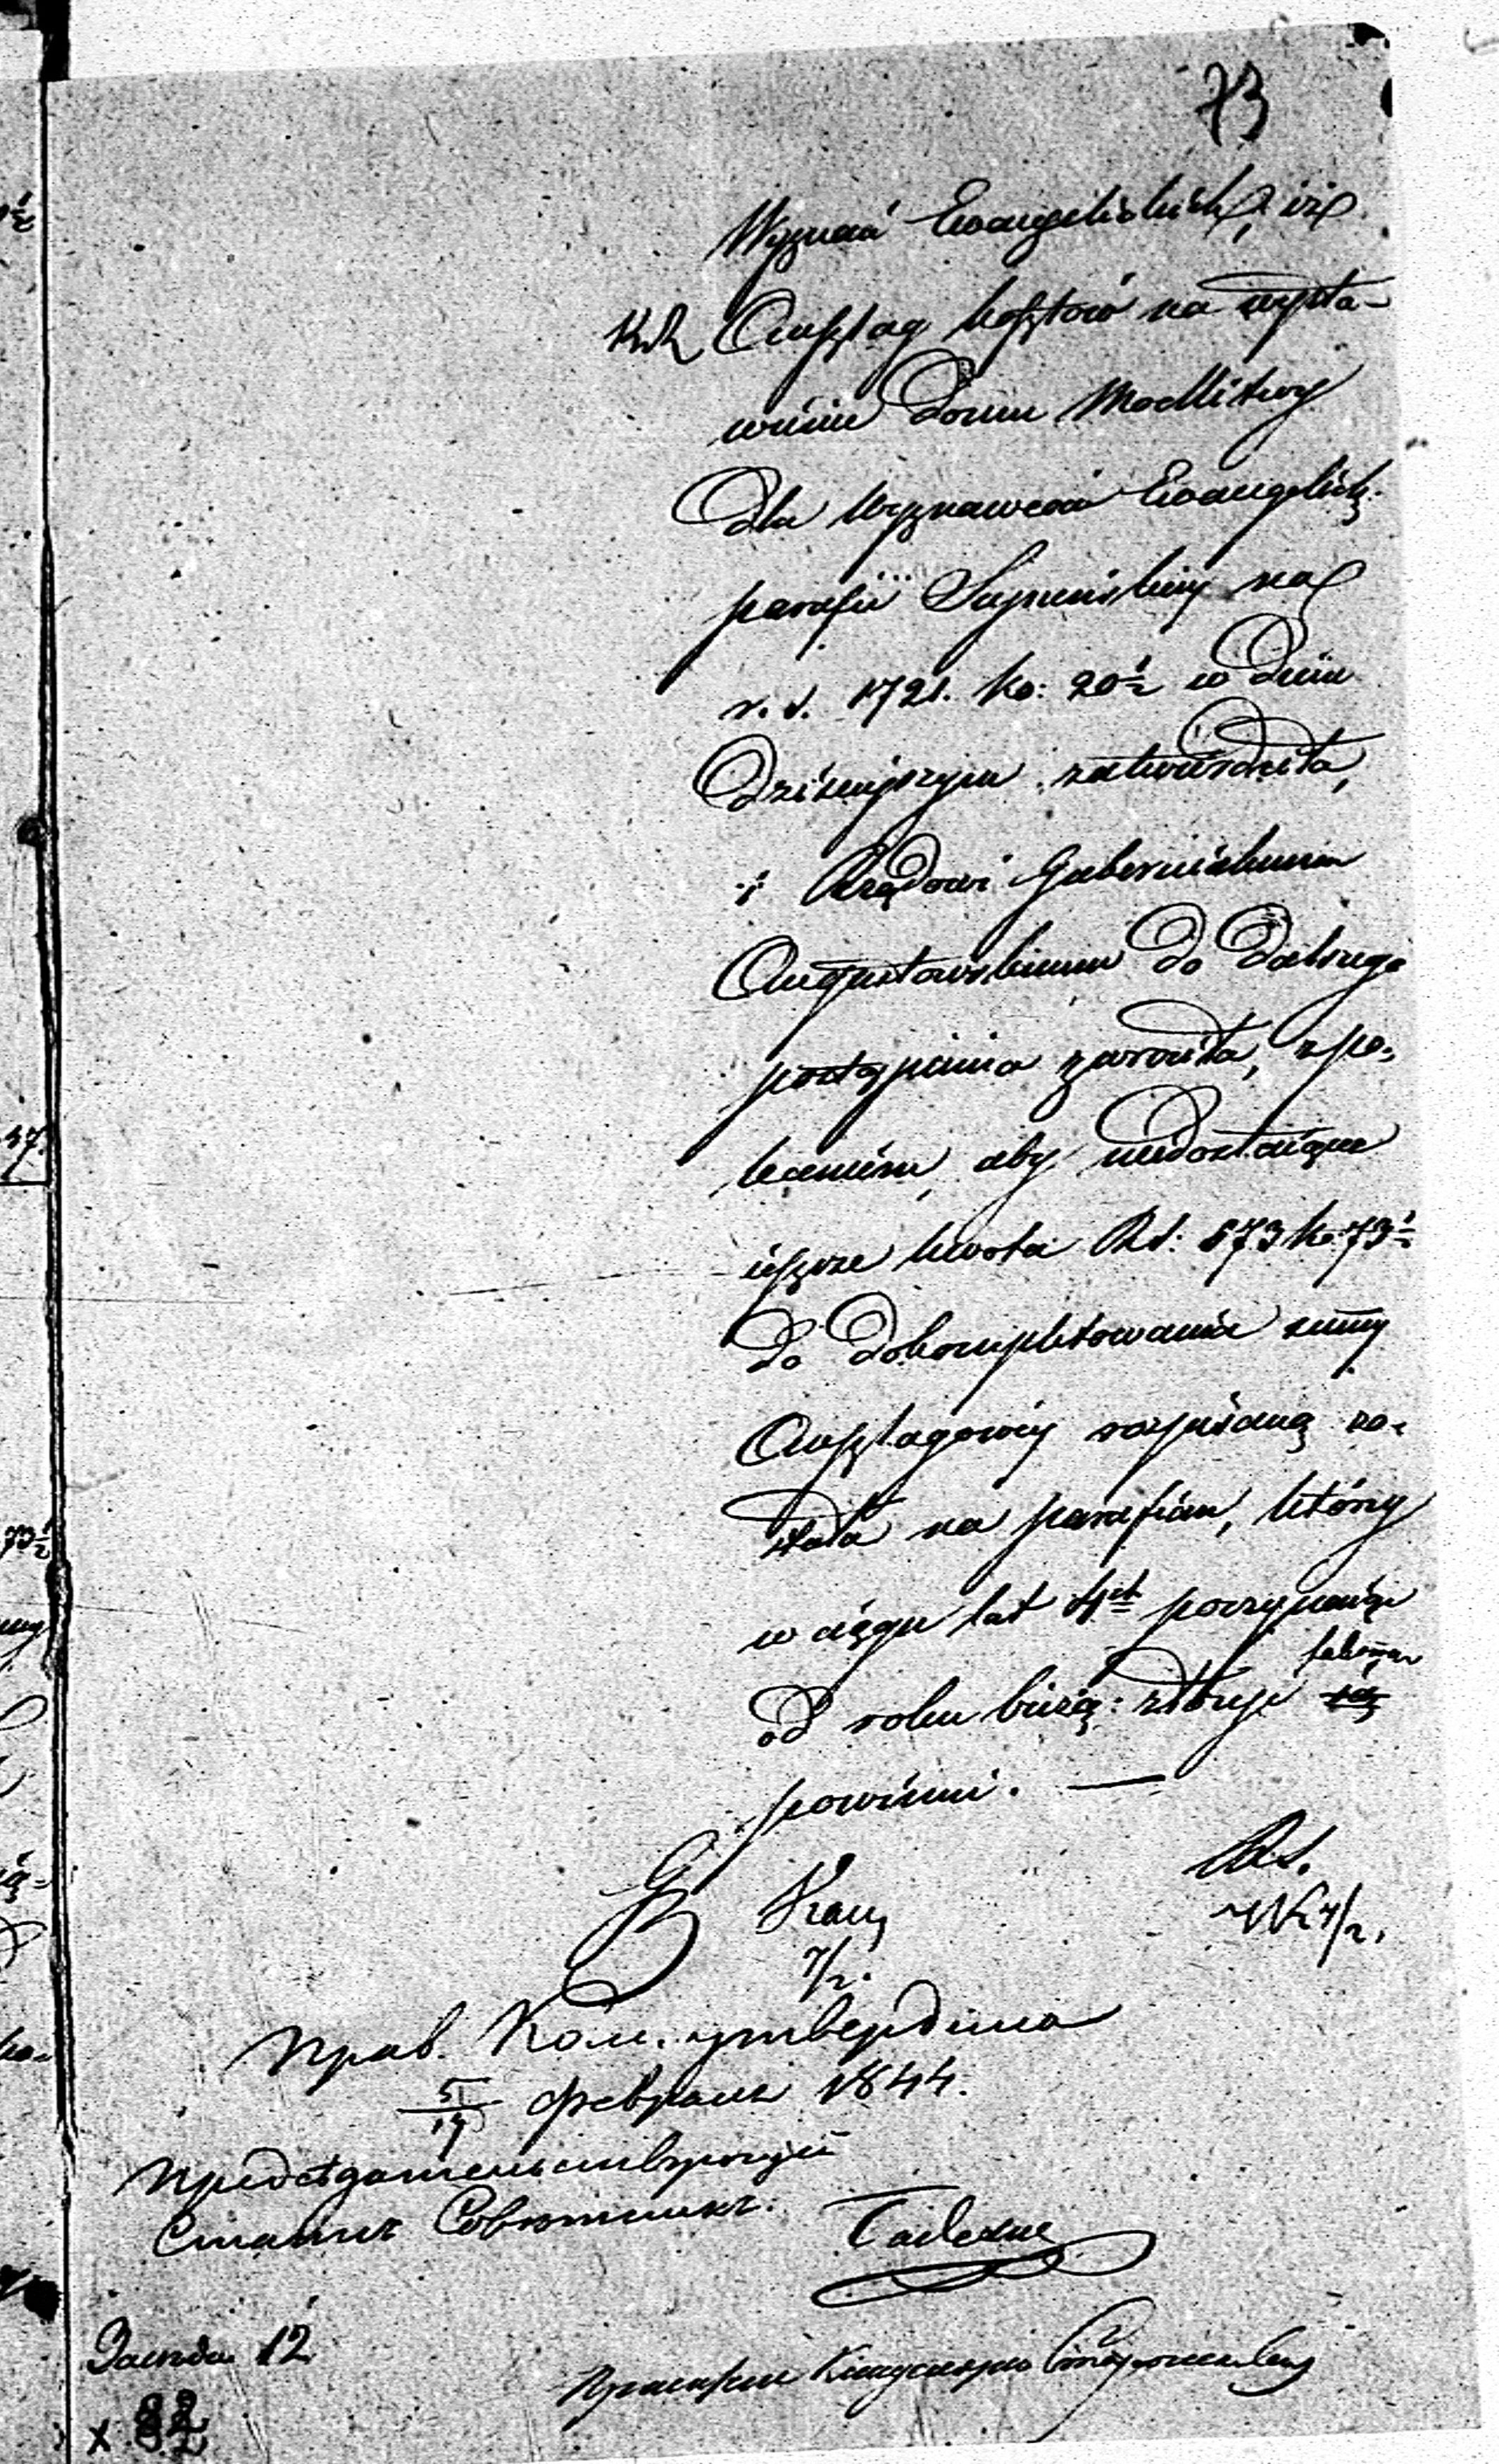 73
Wyznań Ewangelickich, iż
Anszlag kosztów na wysta-
wienie Domu Modlitwy
dla Wyznawców Ewangelick:
parafii Sejneńskiej na
r. s. 1721. ko: 20½ w dniu
dzisiejszym zatwierdziła,
i Rządowi Guberniialnemu
Augustowskiemu do dalszego
postąpienia zwróciła, z po-
leceniem, aby niedostająca
jeszcze kwota Rs: 573 ko: 73½
do dokompletowania summy
Anszlagowej rozpisaną zo-
stała na parafian, którzy
w ciągu lat 4ch poczynając
od roku bieżą: złożyć takową
powinni. —
Rs.
7/2.
Прав. Ком. утвердила
5/17 Февраля 1844.
Предсѣдательствующій
Статск Совѣтникъ.
12
x 82